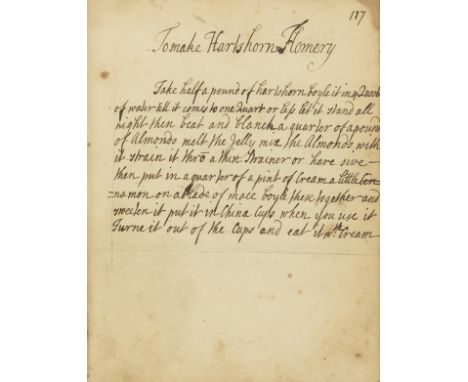 187
To make Hartshorn Flomery
Take half a pound of hartshorn boyle it in 4 Quarts
of water till it comes to one Quart or less let it stand all
night then beat and blanch a quarter of a pound
of Almonds melt the Jelly mix the Almonds with
it strain it thro a thin strainer or hare sive
then put in a quarter of a pint of Cream a little Cin-
-namon or a blade of mace boyle these together and
sweeten it put it in China Cups when you use it
Turne it out of the Cups and eat it wth. Cream